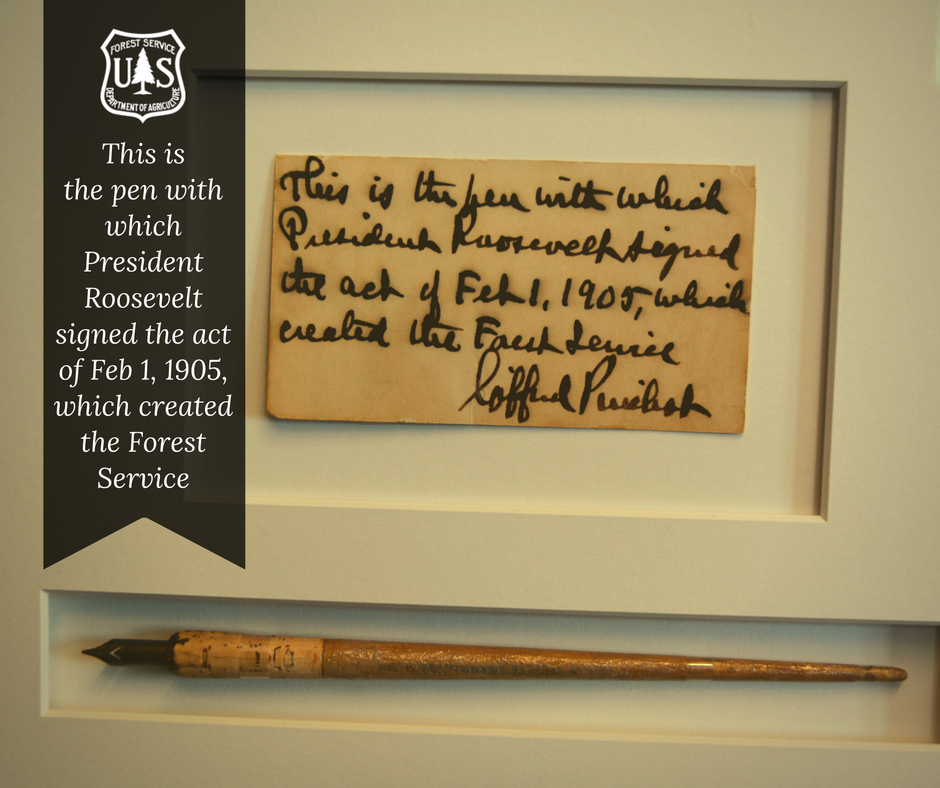 FOREST SERVICE
US
DEPARTMENT OF AGRICULTURE
This is
the pen with
which
President
Roosevelt
signed the act
of Feb 1, 1905,
which created
the Forest
Service
This is the pen with which
President Roosevelt signed
the act of Feb 1, 1905, which
created the Forest Service
Gifford Pinchot